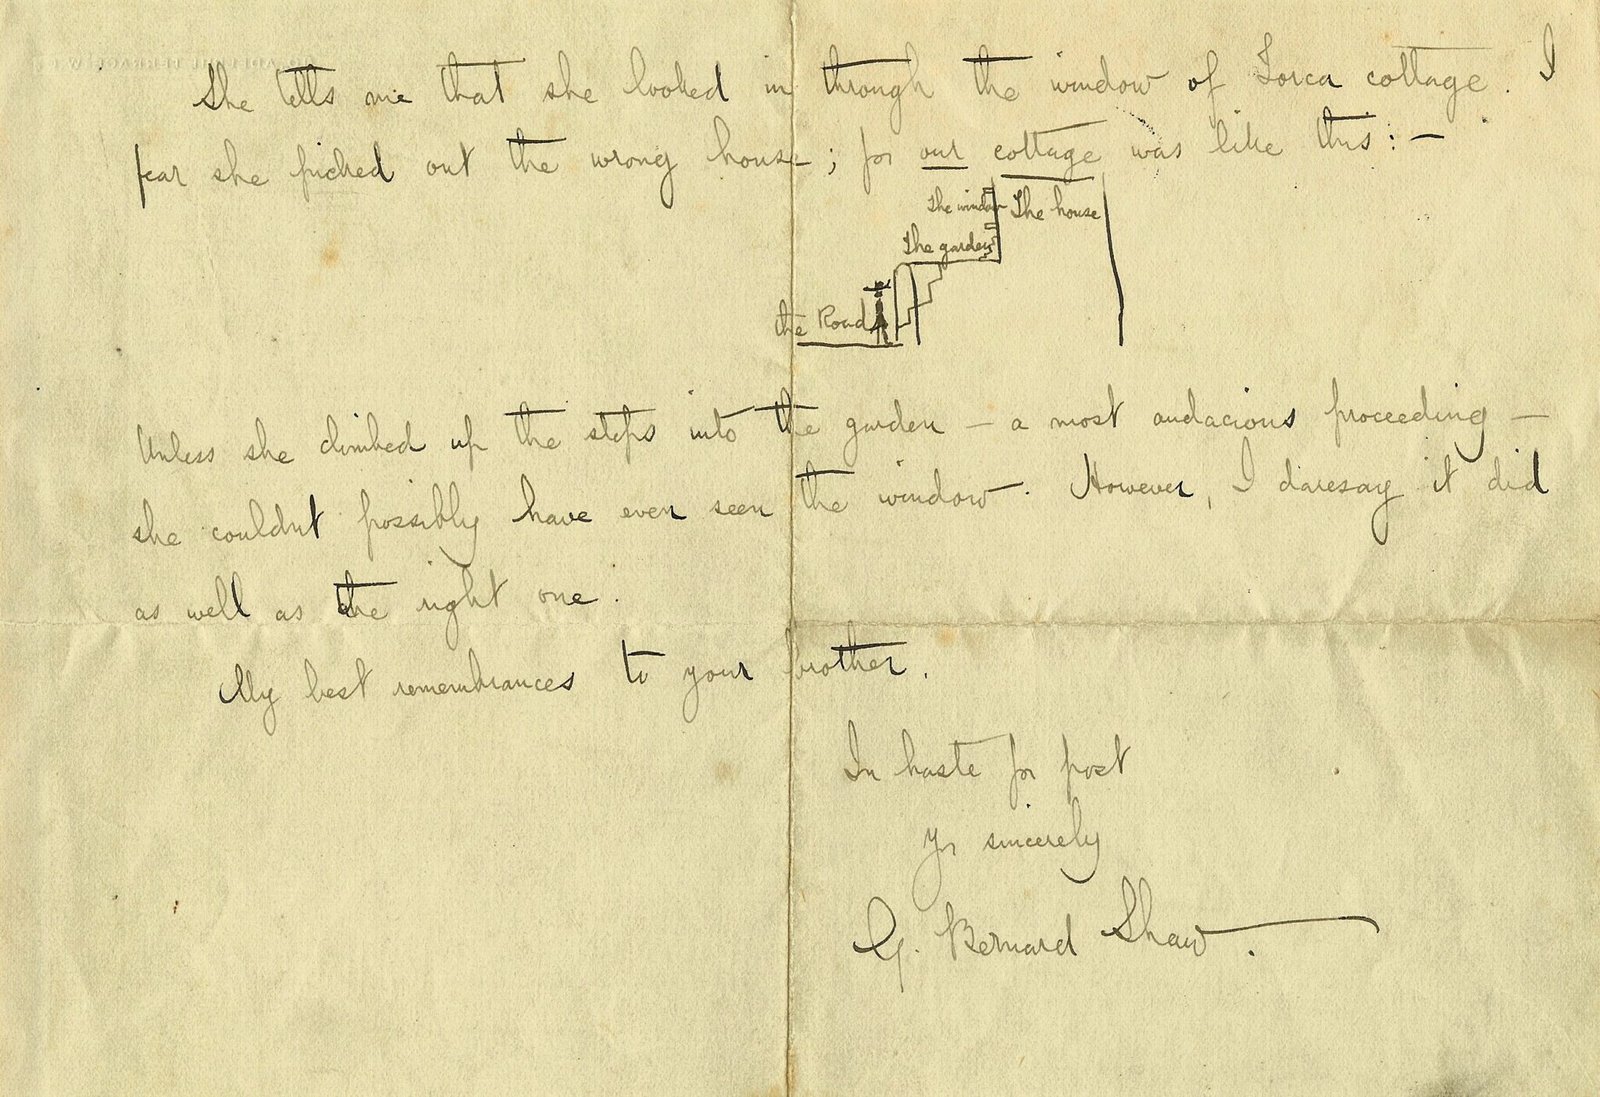 She tells me that she looked in through the window of Torca cottage. I
fear she picked out the wrong house; for our cottage was like this: —
The window The house
The garden
the Road
Unless she climbed up the steps into the garden — a most audacious proceeding —
she couldnt possibly have even seen the window. However, I daresay it did
as well as the right one.
My best remembrances to your brother.
In haste for post
yrs sincerely
G. Bernard Shaw.